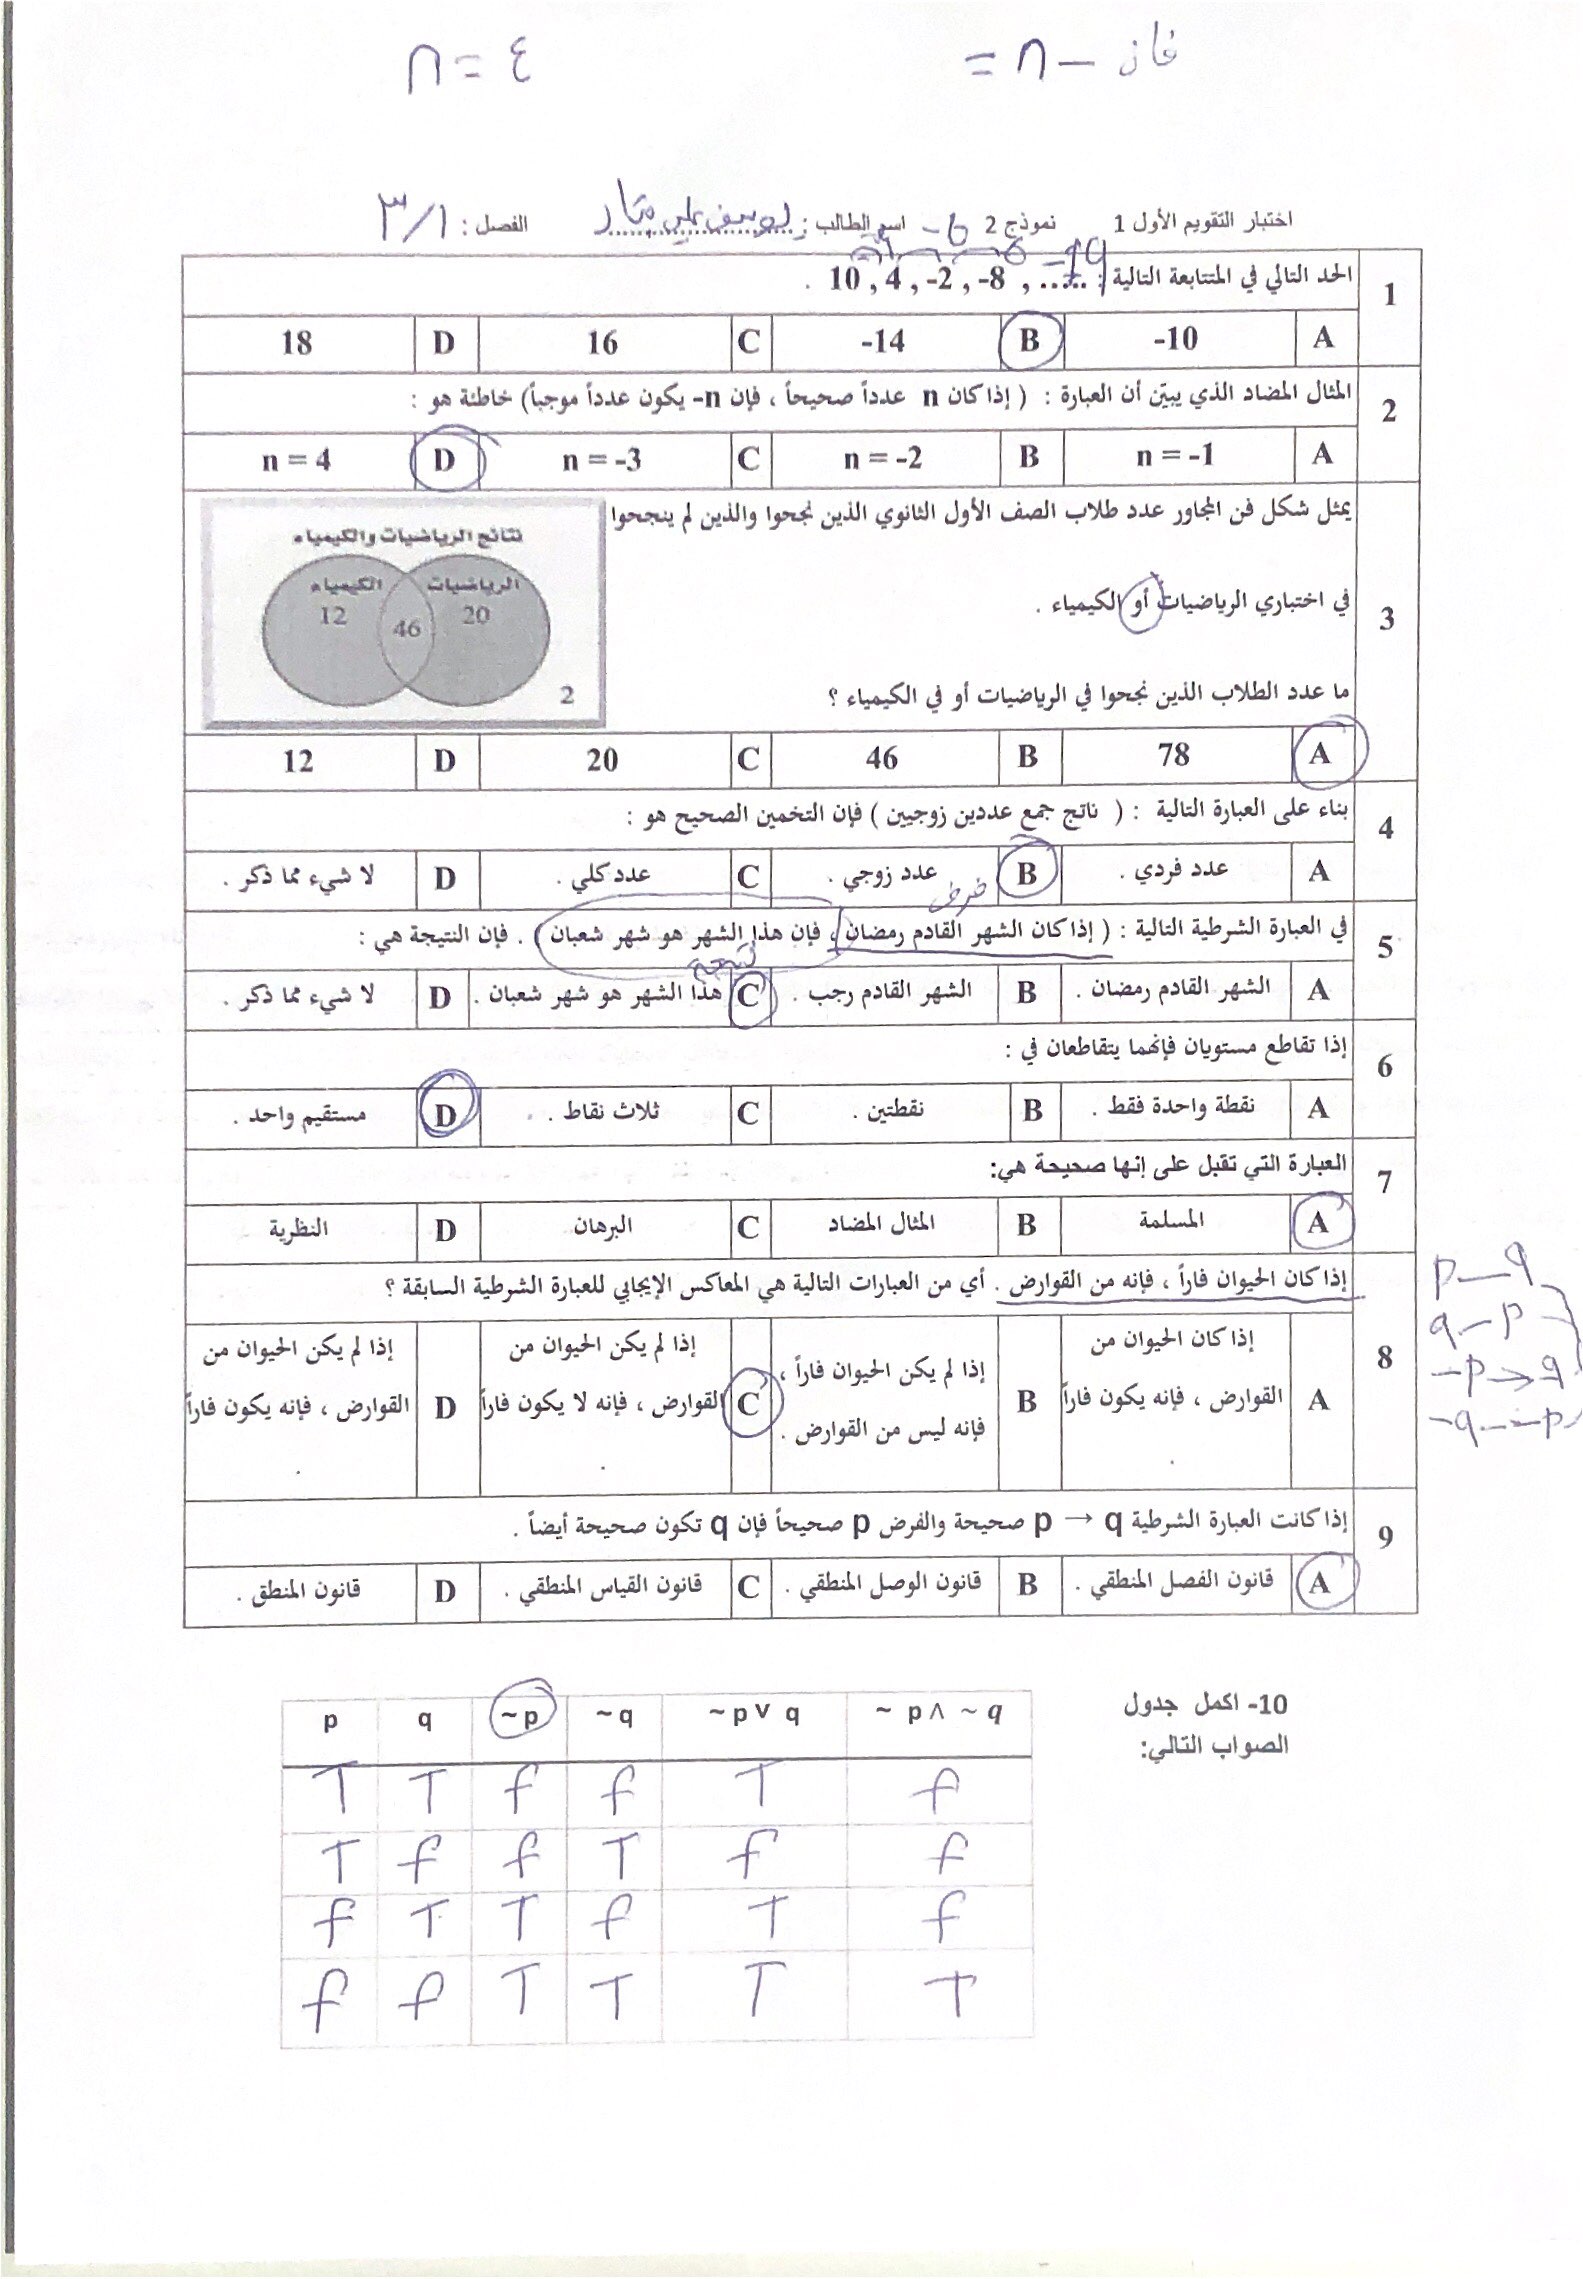 n = ٤
فان – n =
اختبار التقويم الأول 1 نموذج 2 اسم الطالب : يوسف علي الفصل : ٣/١
-6
-14
1 الحد التالي في المتتابعة التالية : 10 , 4 , -2 , -8 , ..... .
A -10 B -14 C 16 D 18
2 المثال المضاد الذي يبيّن أن العبارة : ( إذا كان n عدداً صحيحاً ، فإن n- يكون عدداً موجباً) خاطئة هو :
A n = -1 B n = -2 C n = -3 D n = 4
3 يمثل شكل فن المجاور عدد طلاب الصف الأول الثانوي الذين نجحوا والذين لم ينجحوا
في اختباري الرياضيات أو الكيمياء .
ما عدد الطلاب الذين نجحوا في الرياضيات أو في الكيمياء ؟
نتائج الرياضيات والكيمياء
الرياضيات الكيمياء
20 46 12
2
A 78 B 46 C 20 D 12
4 بناء على العبارة التالية : ( ناتج جمع عددين زوجيين ) فإن التخمين الصحيح هو :
A عدد فردي . B عدد زوجي . C عدد كلي . D لا شيء مما ذكر .
فرض
5 في العبارة الشرطية التالية : ( إذا كان الشهر القادم رمضان ، فإن هذا الشهر هو شهر شعبان ) . فإن النتيجة هي :
نتيجة
A الشهر القادم رمضان . B الشهر القادم رجب . C هذا الشهر هو شهر شعبان . D لا شيء مما ذكر .
6 إذا تقاطع مستويان فإنهما يتقاطعان في :
A نقطة واحدة فقط . B نقطتين . C ثلاث نقاط . D مستقيم واحد .
7 العبارة التي تقبل على إنها صحيحة هي:
A المسلمة B المثال المضاد C البرهان D النظرية
8 إذا كان الحيوان فاراً ، فإنه من القوارض . أي من العبارات التالية هي المعاكس الإيجابي للعبارة الشرطية السابقة ؟
A إذا كان الحيوان من القوارض ، فإنه يكون فاراً .
B إذا لم يكن الحيوان فاراً ، فإنه ليس من القوارض .
C إذا لم يكن الحيوان من القوارض ، فإنه لا يكون فاراً .
D إذا لم يكن الحيوان من القوارض ، فإنه يكون فاراً .
p – q
q – p
-p → q
-q – -p
9 إذا كانت العبارة الشرطية p → q صحيحة والفرض p صحيحاً فإن q تكون صحيحة أيضاً .
A قانون الفصل المنطقي . B قانون الوصل المنطقي . C قانون القياس المنطقي . D قانون المنطق .
10- اكمل جدول
الصواب التالي:
p q ~p ~q ~p ∨ q ~ p ∧ ~ q
T T f f T f
T f f T f f
f T T f T f
f f T T T T